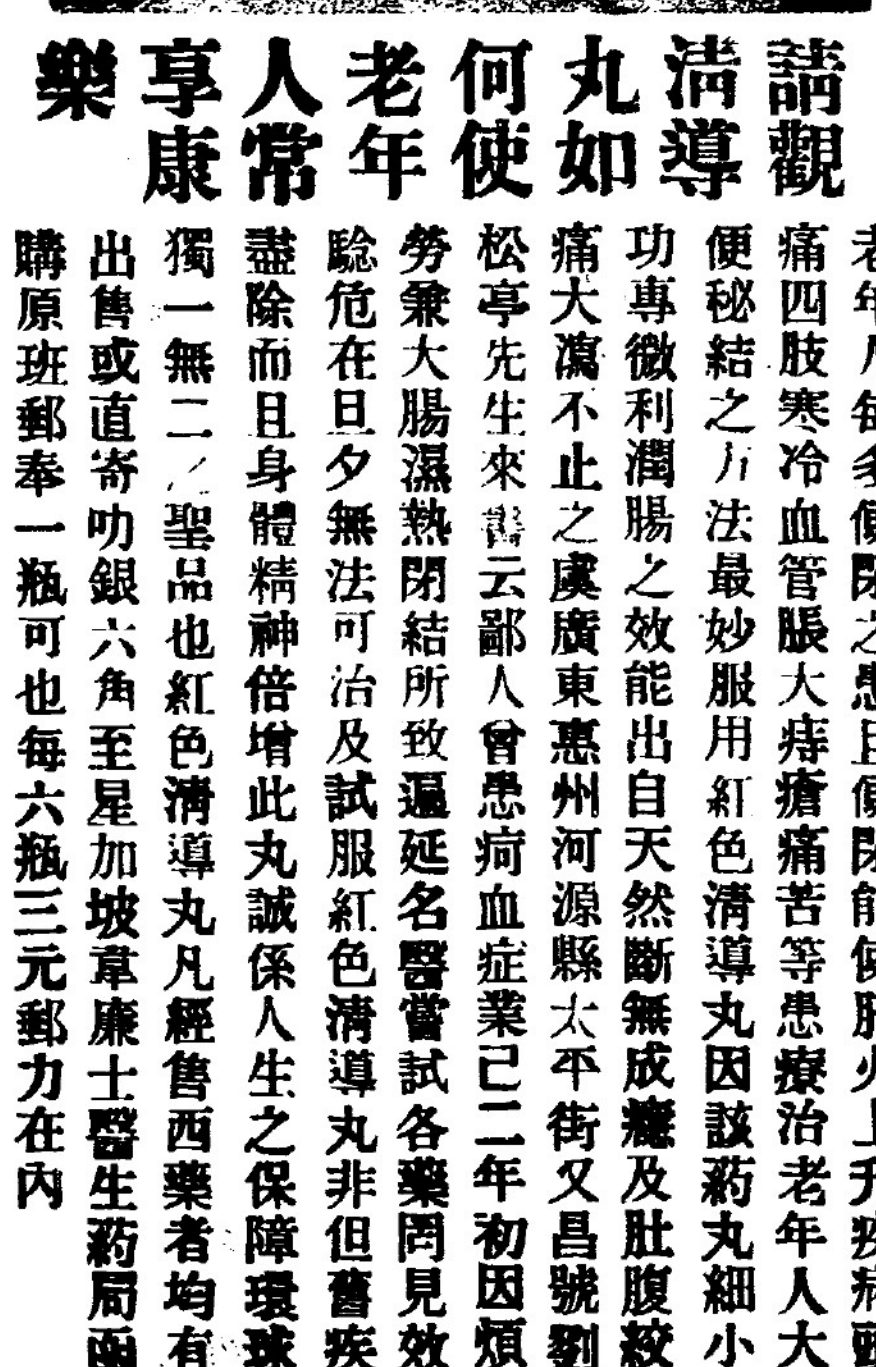 請觀
清導
丸如
何使
老年
人常
享康
樂
老年人每多便閉之患且便閉能使肝火上升疾病頭
痛四肢寒冷血管脹大痔瘡痛苦等患療治老年人大
便秘結之方法最妙服用紅色清導丸因該葯丸細小
功專微利潤腸之效能出自天然斷無成癮及肚腹絞
痛大瀉不止之虞廣東惠州河源縣太平街又昌號劉
松亭先生來書云鄙人曾患痾血症業已二年初因煩
勞兼大腸濕熱閉結所致遍延名醫嘗試各藥罔見效
驗危在旦夕無法可治及試服紅色清導丸非但舊疾
盡除而且身體精神倍增此丸誠係人生之保障環球
獨一無二之聖品也紅色清導丸凡經售西藥者均有
出售或直寄叻銀六角至星加坡韋廉士醫生葯局函
購原班郵奉一瓶可也每六瓶三元郵力在內